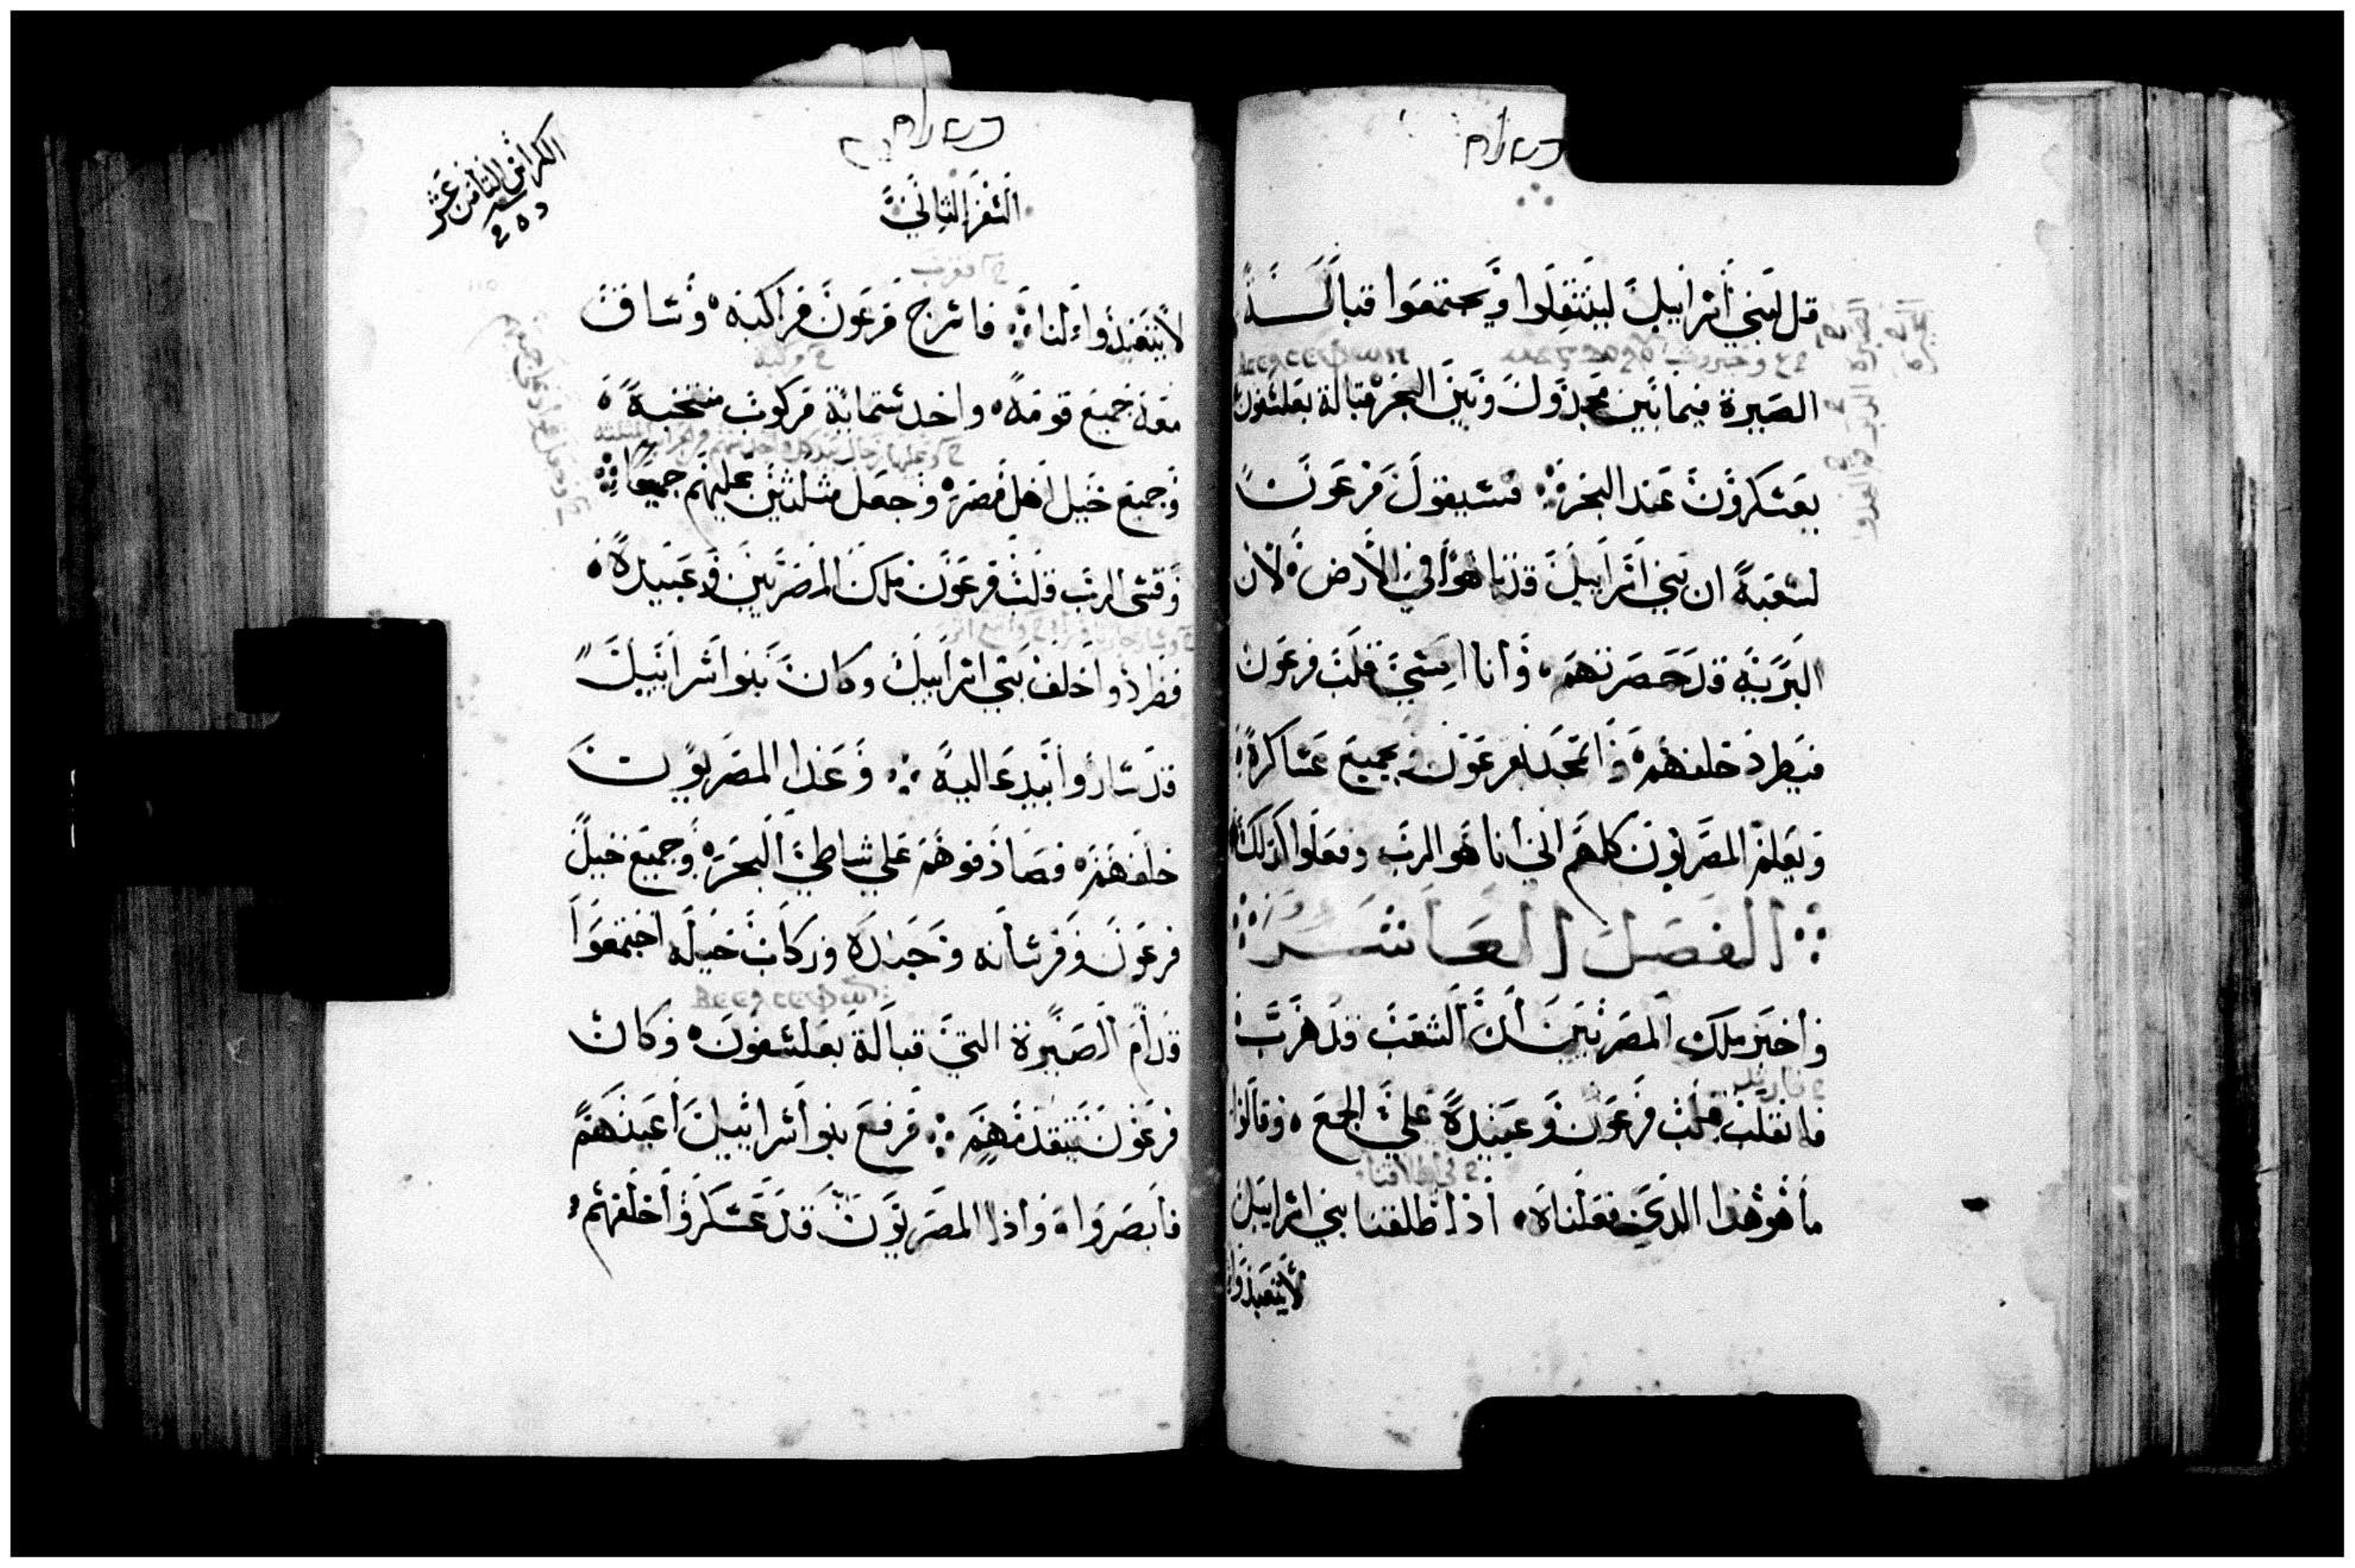 قل لبني اسرابيل لينتقلوا ويجتمعوا قبالة
الصيرة فيما بين مجدول وبين البحر قبالة بعلسفون
يعسكرون عند البحر فسيقول فرعون
لشعبه ان بني اسرابيل قد تاهوا في الأرض لأن
البرية قد حصرتهم وأنا اقسي قلب فرعون
فيطرد خلفهم وأتمجد بفرعون وبجميع عساكره
ويعلم المصريون كلهم اني أنا هو الرب وفعلوا كذلك
الفصل العاشر
وأخبر ملك المصريين أن الشعب قد هرب
فانقلب قلب فرعون وعبيده علي الجمع وقالوا
ما هو هذا الذي فعلناه اذ اطلقنا بني اسرابيل
لأيتعبدوا
السفر الثاني
الكراس الثامن عشر
لأيتعبدوا لنا فاسرج فرعون مراكبه وساق
معه جميع قومه واخد ستماية مركوب منتخبة
وجميع خيل اهل مصر وجعل مثلثين عليهم جميعا
وقسي الرب قلب فرعون ملك المصريين وعبيده
فطردوا خلف بني اسرابيل وكان بنوا اسرابيل
قد ساروا بيد عالية وغدا المصريون
خلفهم فصادفوهم علي شاطي البحر وجميع خيل
فرعون وفرسانه وجنده وركاب خيله اجتمعوا
قدام الصيرة التي قبالة بعلسفون وكان
فرعون يتقدمهم فرفع بنوا اسرابيل أعينهم
فأبصروا واذا المصريون قد عسكروا خلفهم